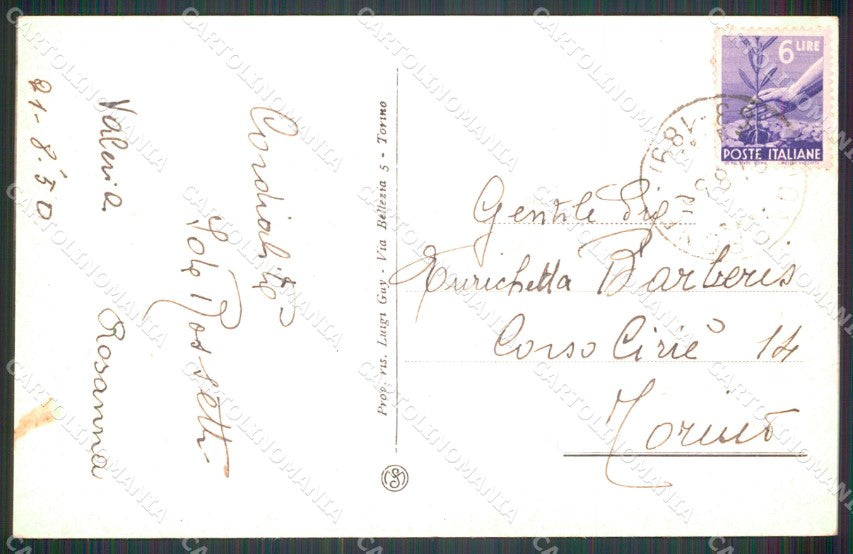 21-8-50
Cordialità
Rossetti
Valeria Rosanna
Prop. ris. Luigi Guy - Via Bellezia 5 - Torino
6 LIRE
POSTE ITALIANE
Gentile Sig.na
Enrichetta Barberis
Corso Ciriè 14
Torino
CARTOLINOMANIA